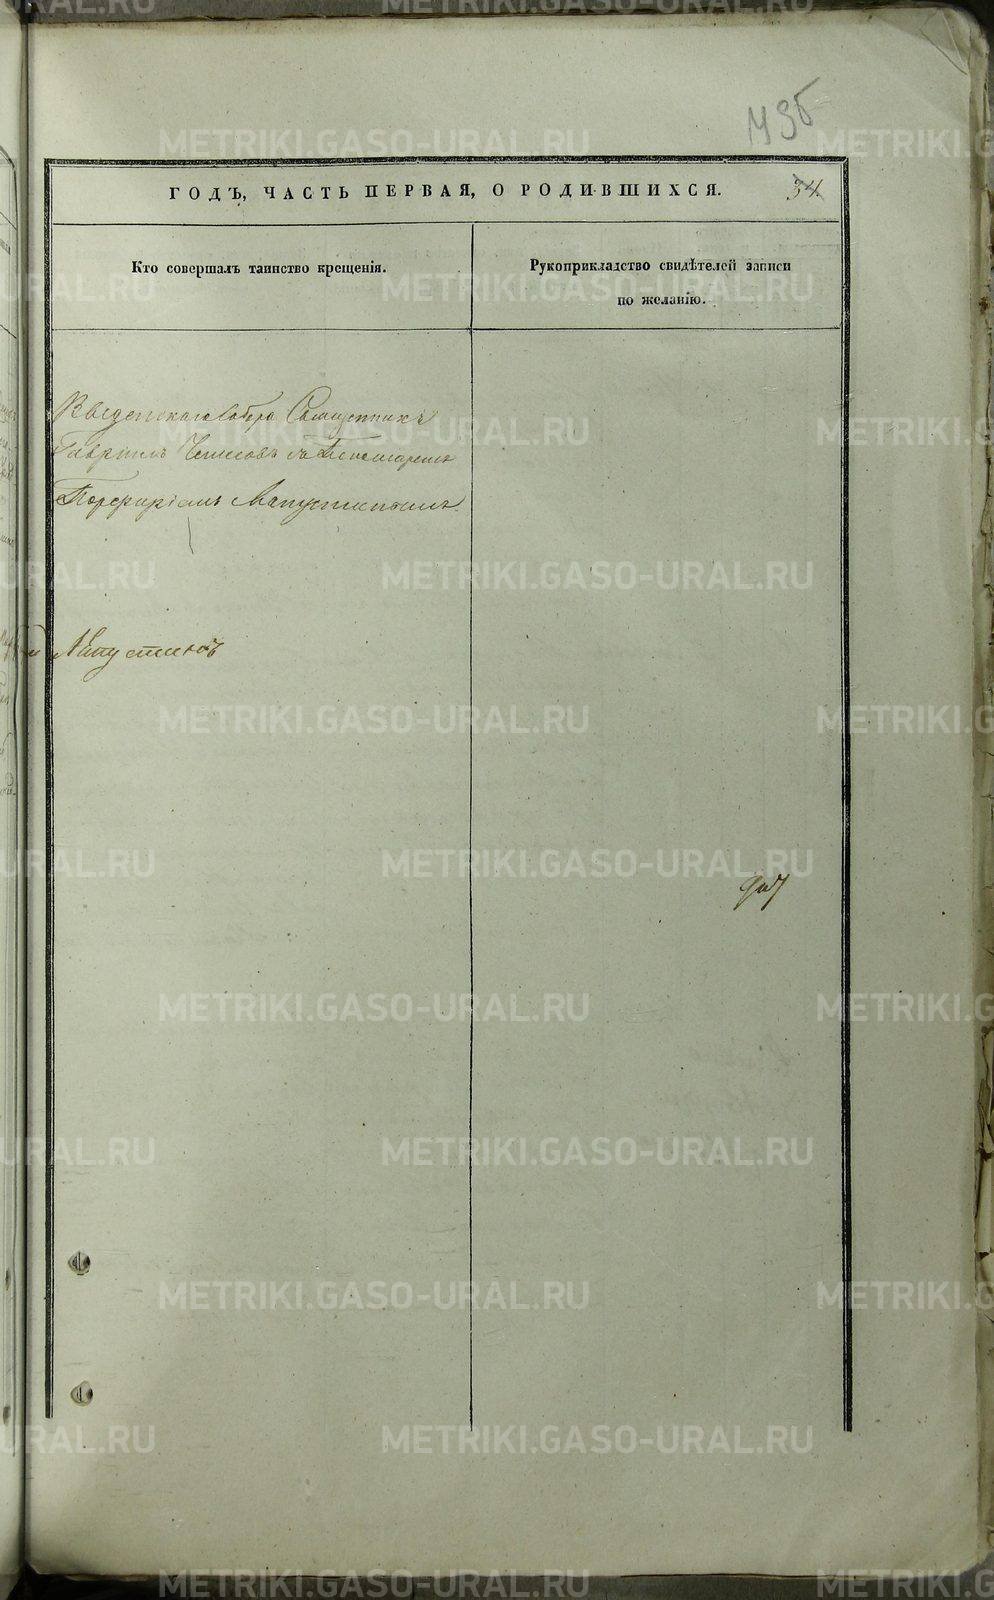 436
ГОДЪ, ЧАСТЬ ПЕРВАЯ, О РОДИВШИХСЯ. 34
Кто совершалъ таинство крещенія.
Рукоприкладство свидѣтелей записи
по желанію.
Введенскаго Собора Священникъ
Гавріилъ съ Пономаремъ
Порфиріемъ Капустинымъ
Капустинъ
METRIKI.GASO-URAL.RU